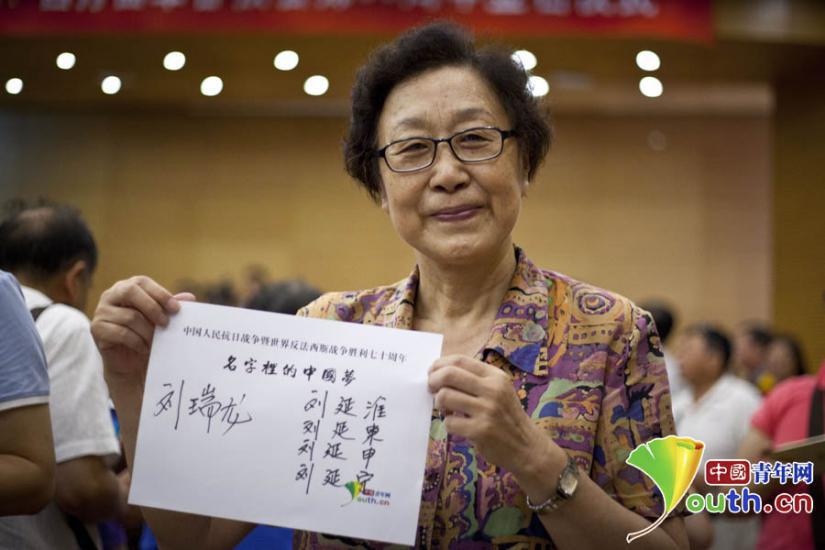 中国人民抗日战争暨世界反法西斯战争胜利七十周年
名字裡的中國夢
刘瑞龙
刘延淮
刘延東
刘延申
刘延宁
中国青年网
youth.cn
中國青年网
youth.cn